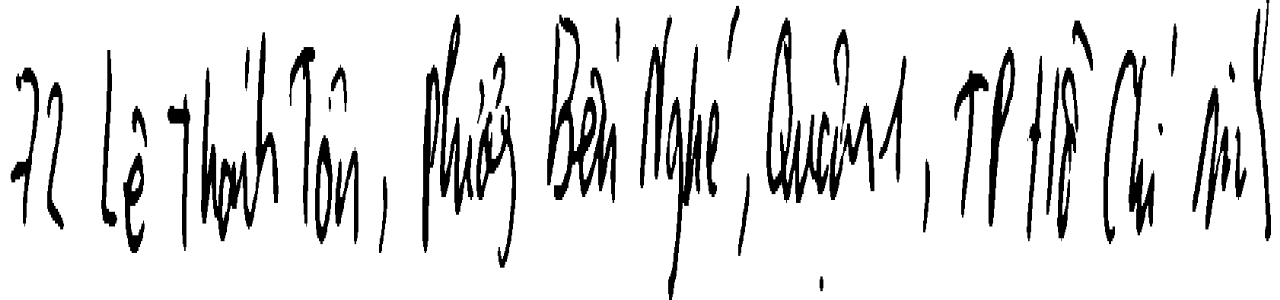 72 Lê Thánh Tôn, Phường Bến Nghé, Quận 1, TP Hồ Chí Minh